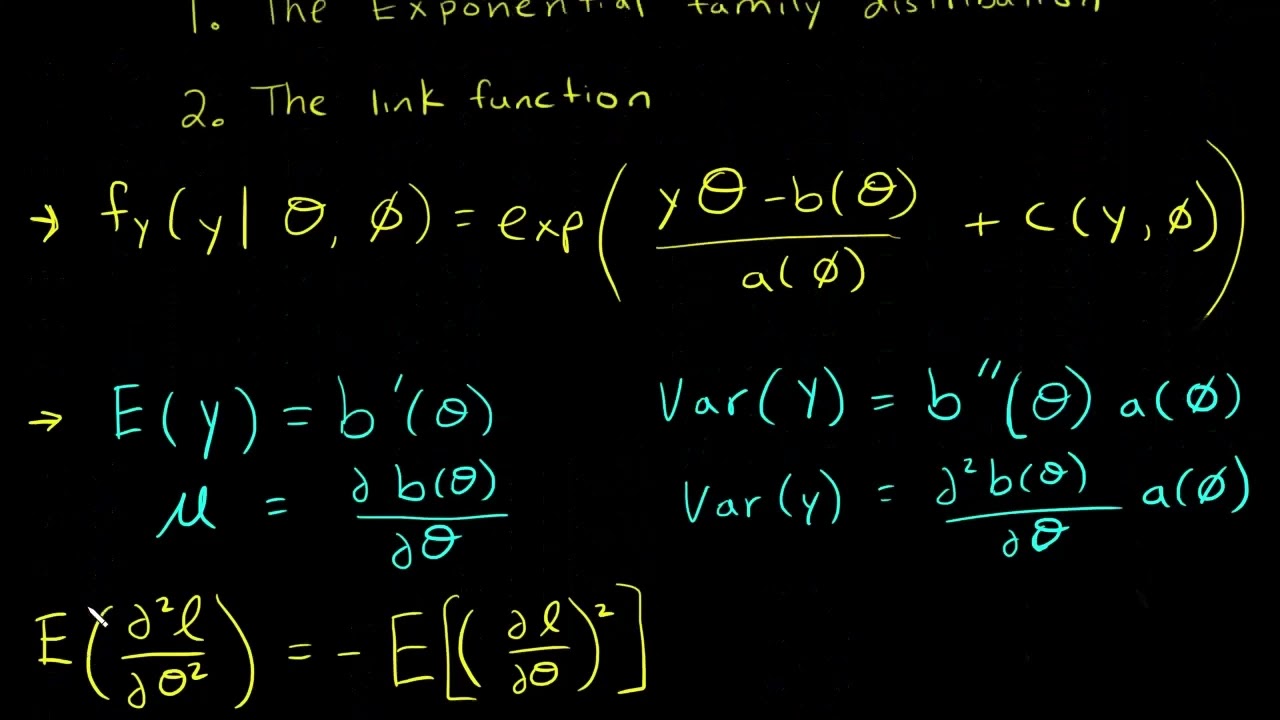 1. The Exponential family distribution
2. The link function
→ f_Y(y| θ, ϕ) = exp( (yθ - b(θ)) / a(ϕ) + c(y, ϕ) )
→ E(y) = b'(θ) Var(Y) = b''(θ) a(ϕ)
μ = ∂b(θ) / ∂θ Var(y) = ∂²b(θ) / ∂θ a(ϕ)
E( ∂²l / ∂θ² ) = - E[ ( ∂l / ∂θ )² ]